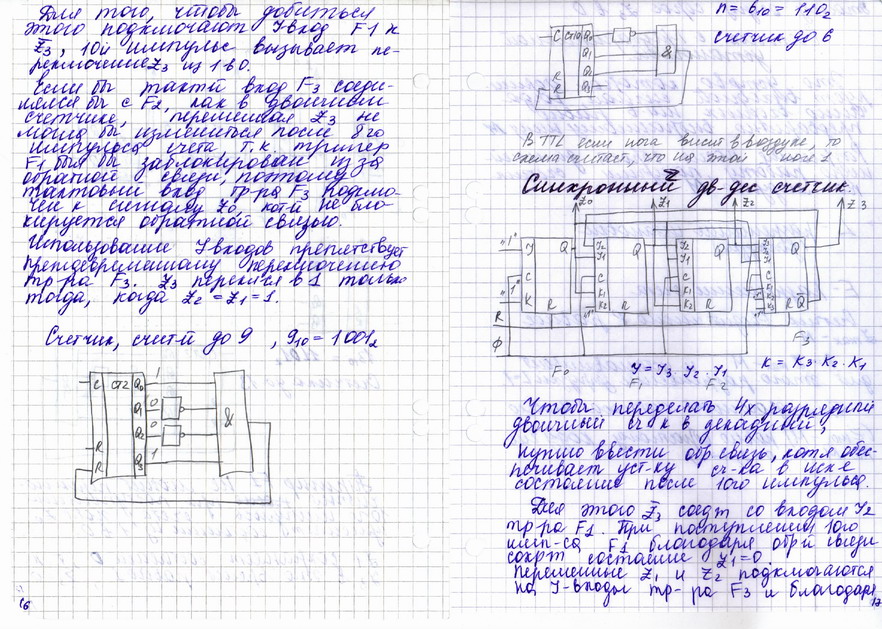 Для того, чтобы добиться
этого подключают J вход F1 к
Z̄3, 10й импульс вызывает пе-
реключение Z3 из 1 в 0.
Если бы тактй вход F3 соеди-
нялся бы с F2, как в двоичном
счетчике, переменная Z3 не
могла бы измениться после 8го
импульса счета т.к. триггер
F1 был бы заблокирован из за
обратной связи, поэтому
тактовый вход тр-ра F3 подклю-
чен к сигналу Z0, котй не бло-
кируется обратной связью.
Использование J входов препятствует
преждевременному переключению
тр-ра F3. Z3 перекл-ся в 1 только
тогда, когда Z2 = Z1 = 1.
Счетчик, считй до 9 , 9₁₀ = 1001₂
C CT2 Q0 1
Q1 0
Q2 0
R
R Q3 1
&
16
n = 6₁₀ = 110₂
счетчик до 6
C CT10 Q0
Q1
R Q2
R Q3
&
В TTL если нога висит в воздухе, то
схема считает, что на этой ноге 1
Синхронный дв-дес счетчик.
Z0 Z1 Z2 Z3
"1" J Q
C
"1" K R
R
Ф
F0 F1 F2 F3
J = J3 · J2 · J1
K = K3 · K2 · K1
Чтобы переделать 4х разрядный
двоичный сч-к в декадный,
нужно ввести обр. связь, котя обес-
печивает уст-ку сч-ка в исх-е
состояние после 10го импульса.
Для этого Z̄3 соедт со входом J2
тр-ра F1. При поступлении 10го
имп-са F1 благодаря обрй связи
сохрт состояние Z1=0
Переменные Z1 и Z2 подключаются
на J-входы тр-ра F3 и благодаря
17